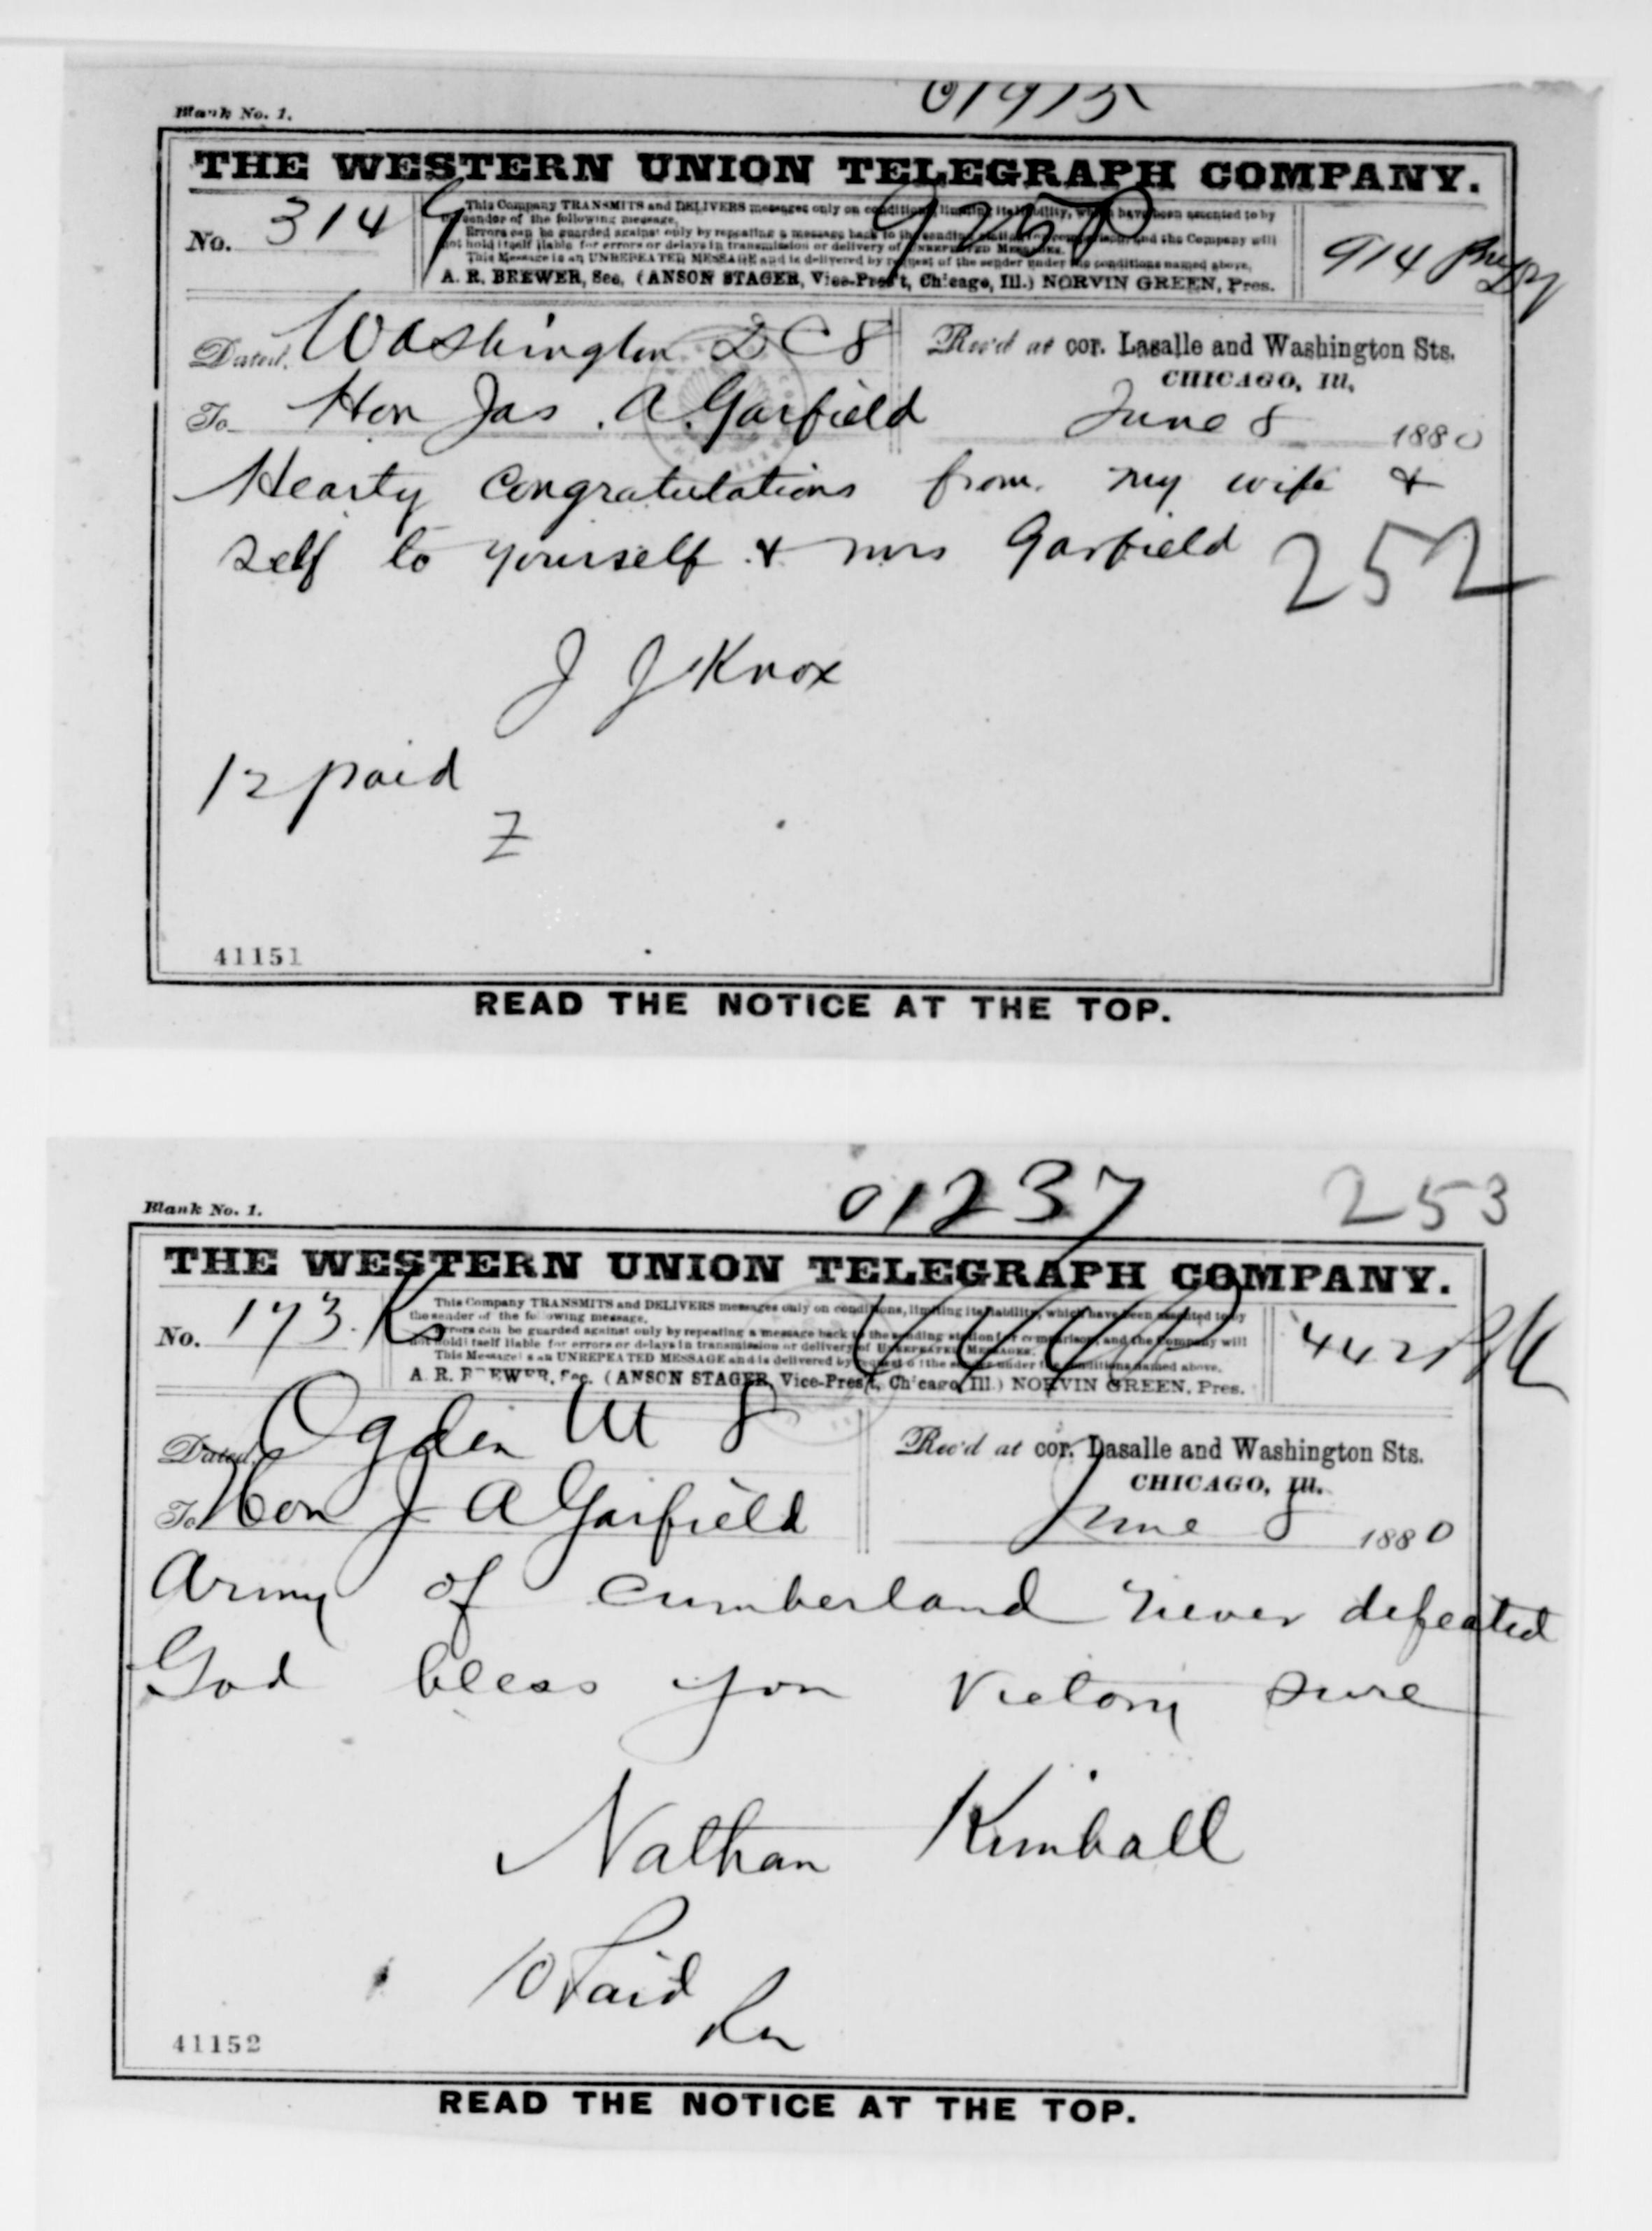 01915
Blank No. 1.
THE WESTERN UNION TELEGRAPH COMPANY.
No. 314 G
This Company TRANSMITS and DELIVERS messages only on conditions, limiting its liability, which have been assented to by
the sender of the following message.
Errors can be guarded against only by repeating a message back to the sending station for comparison, and the Company will
not hold itself liable for errors or delays in transmission or delivery of UNREPEATED MESSAGES.
This Message is an UNREPEATED MESSAGE and is delivered by request of the sender under the conditions named above.
A. R. BREWER, Sec. (ANSON STAGER, Vice-Pres't, Chicago, Ill.) NORVIN GREEN, Pres.
914
Dated, Washington DC 8
Rec'd at cor. Lasalle and Washington Sts.
CHICAGO, Ill.
To Hon Jas. A Garfield
June 8 1880
Hearty Congratulations from my wife &
self to yourself & mrs Garfield
252
J J Knox
12 paid
Z
41151
READ THE NOTICE AT THE TOP.
01237
253
Blank No. 1.
THE WESTERN UNION TELEGRAPH COMPANY.
No. 173.
This Company TRANSMITS and DELIVERS messages only on conditions, limiting its liability, which have been assented to by
the sender of the following message.
Errors can be guarded against only by repeating a message back to the sending station for comparison, and the Company will
not hold itself liable for errors or delays in transmission or delivery of UNREPEATED MESSAGES.
This Message is an UNREPEATED MESSAGE and is delivered by request of the sender under the conditions named above.
A. R. BREWER, Sec. (ANSON STAGER, Vice-Pres't, Chicago, Ill.) NORVIN GREEN, Pres.
442
Dated, Ogden Ut 8
Rec'd at cor. Lasalle and Washington Sts.
CHICAGO, Ill.
To Hon J A Garfield
June 8 1880
Army of Cumberland never defeated
God bless you Victory sure
Nathan Kimball
10 Paid
41152
READ THE NOTICE AT THE TOP.